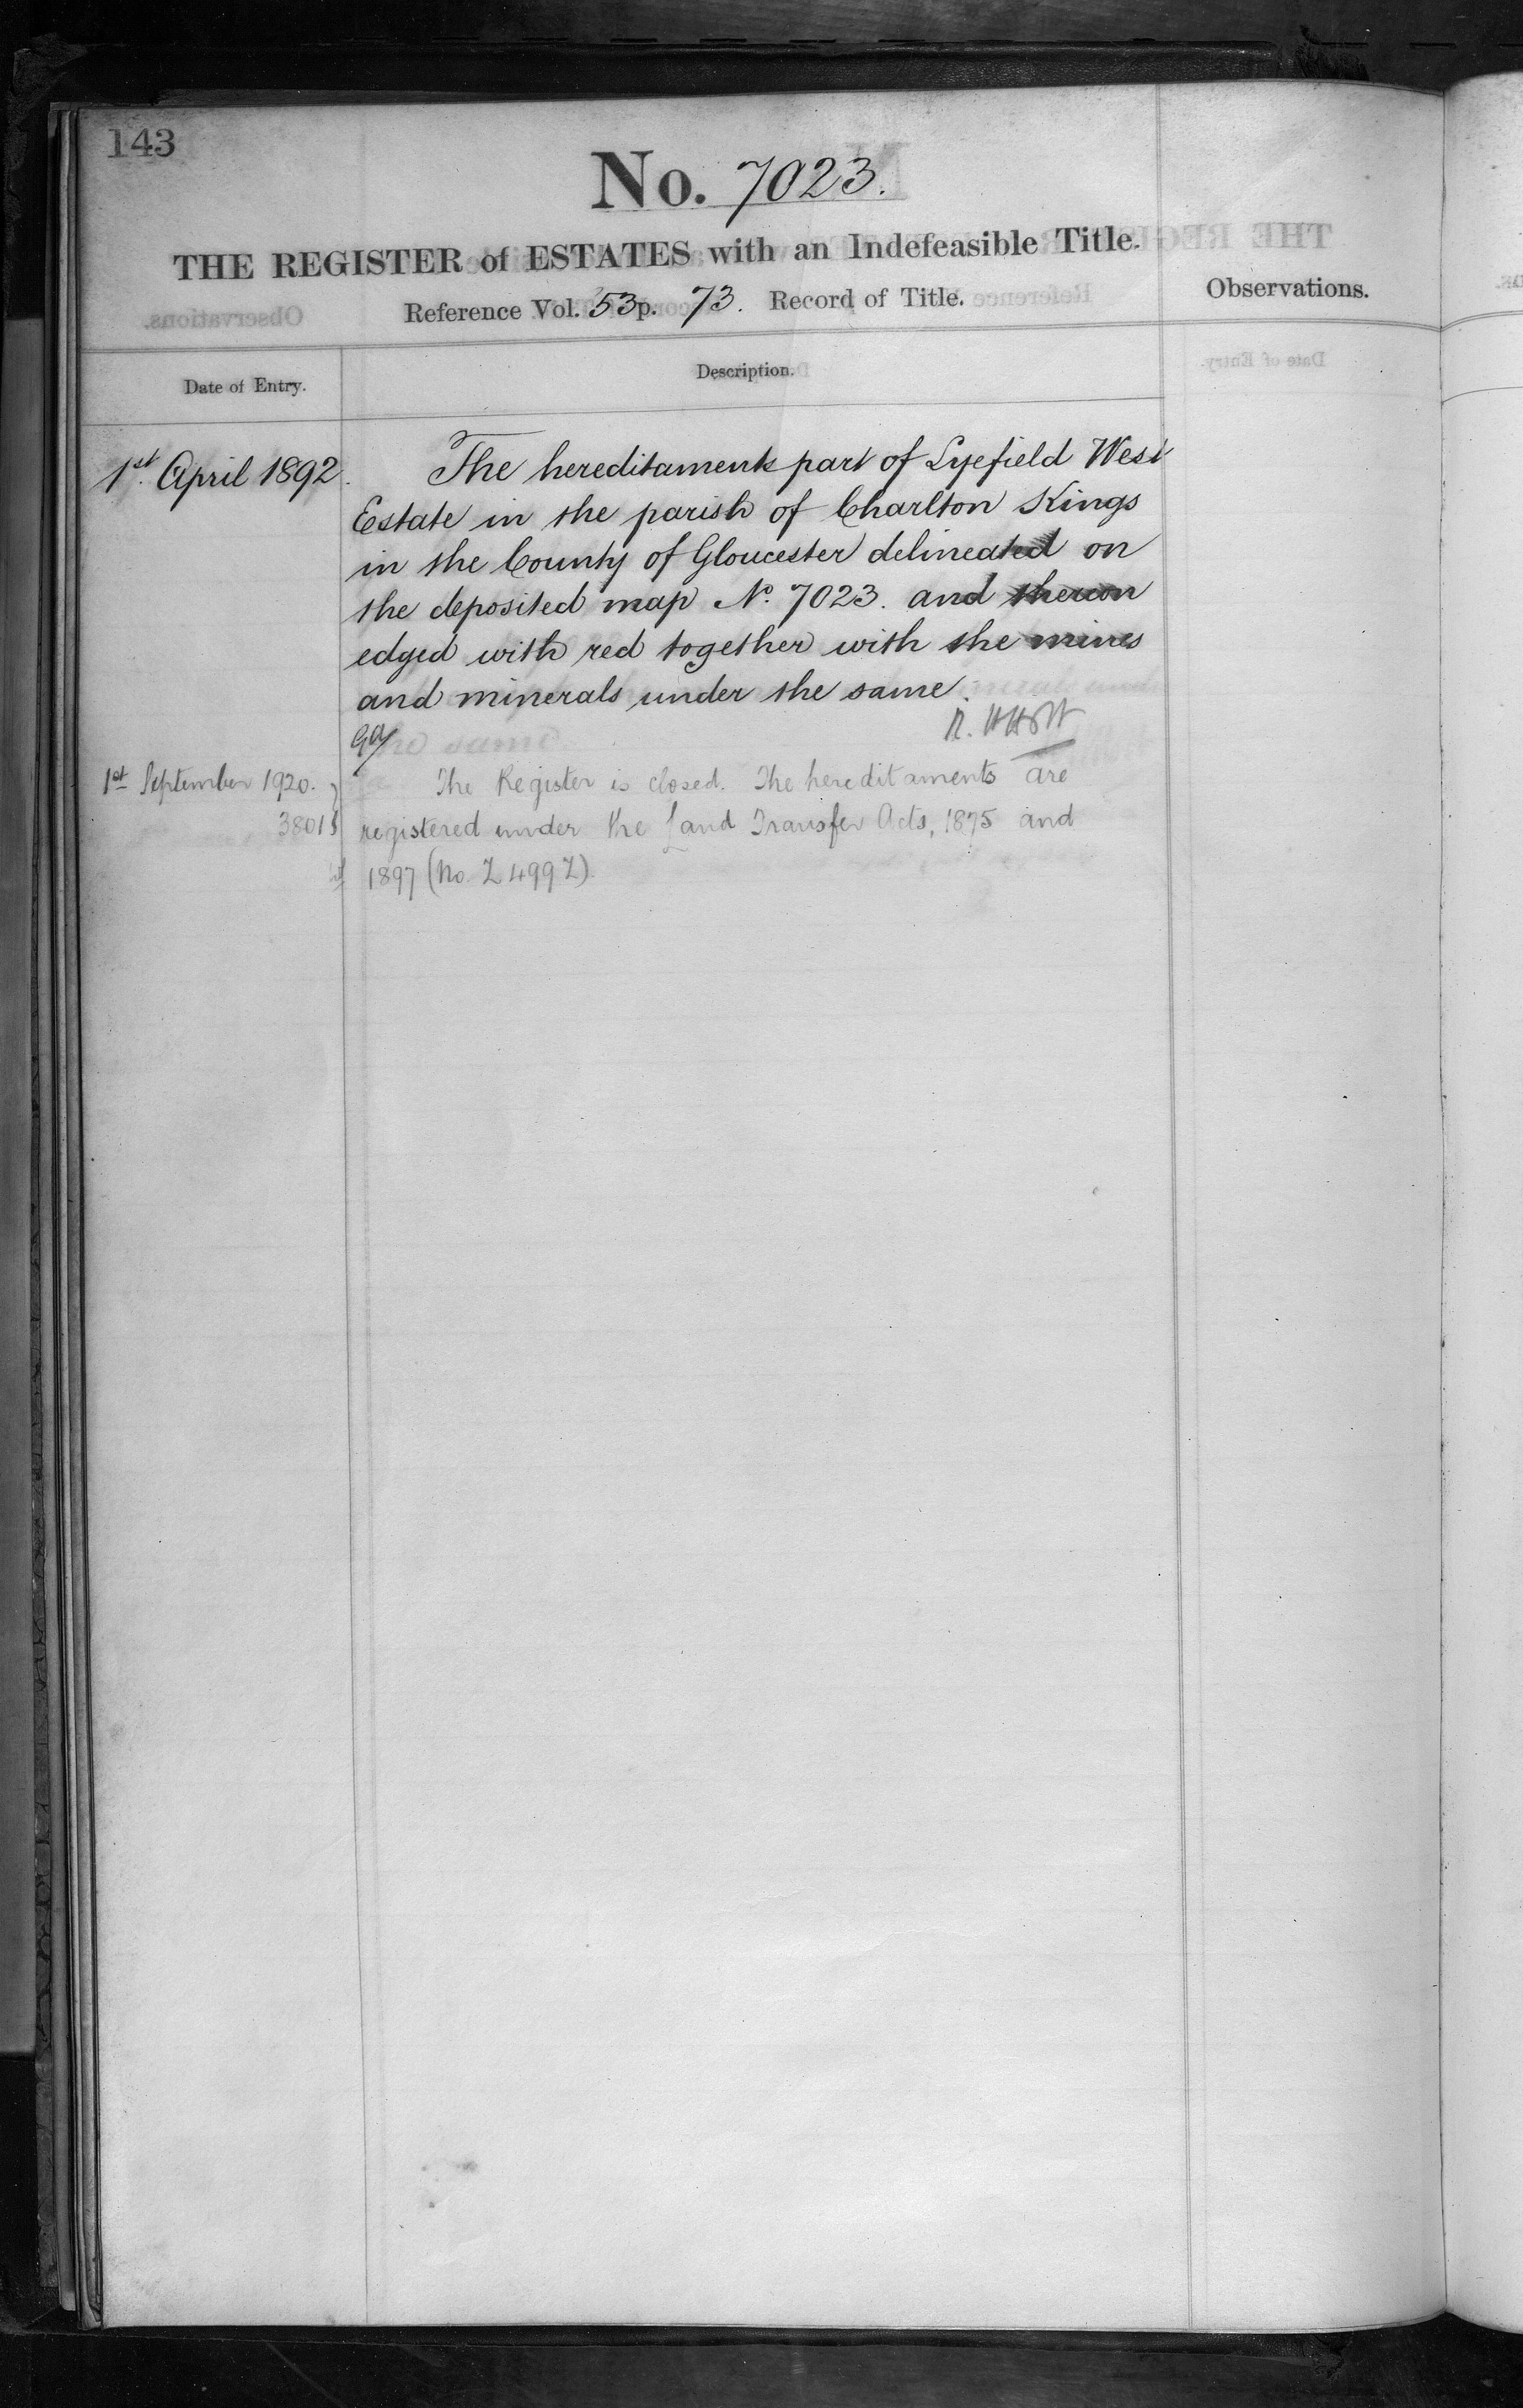 143
No. 7023.
THE REGISTER of ESTATES with an Indefeasible Title.
Reference Vol. 53 p. 73. Record of Title.
Observations.
Date of Entry.
Description.
1st April 1892.
The hereditaments part of Lyefield West
Estate in the parish of Charlton Kings
in the County of Gloucester delineated on
the deposited map No. 7023. and thereon
edged with red together with the mines
and minerals under the same.
1st September 1920.
The Register is closed. The hereditaments are
registered under the Land Transfer Acts, 1875 and
1897 (No. Z 499 Z).